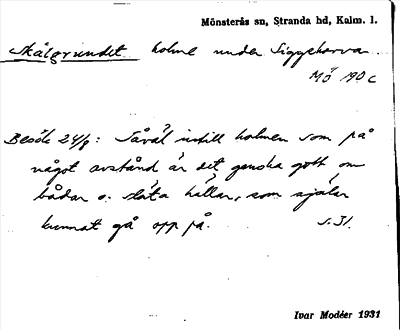 Mönsterås sn, Stranda hd, Kalm. l.
Skålgrundet holme under Siggeharva.
Mö 190 c
Besök 24/8: Såväl intill holmen som på
något avstånd är det ganska gott om
bådar o. släta hällar, som själar
kunnat gå opp på. s. 31.
Ivar Modéer 1931